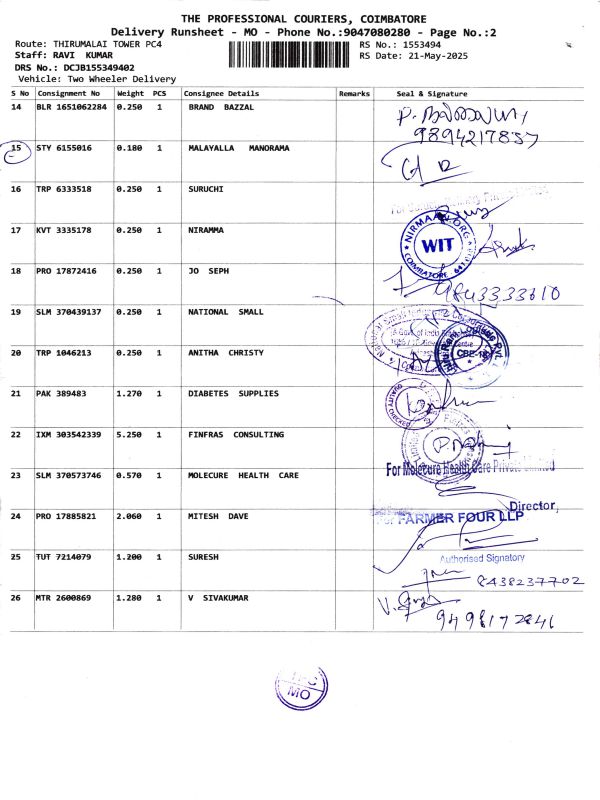 THE PROFESSIONAL COURIERS, COIMBATORE
Delivery Runsheet - MO - Phone No.:9047080280 - Page No.:2
Route: THIRUMALAI TOWER PC4
RS No.: 1553494
Staff: RAVI KUMAR
RS Date: 21-May-2025
DRS No.: DCJB155349402
Vehicle: Two Wheeler Delivery
S No Consignment No Weight PCS Consignee Details Remarks Seal & Signature
14 BLR 1651062284 0.250 1 BRAND BAZZAL
9894217857
15 STY 6155016 0.180 1 MALAYALLA MANORAMA
16 TRP 6333518 0.250 1 SURUCHI
17 KVT 3335178 0.250 1 NIRAMMA
NIRMAAN.ORG
WIT
COIMBATORE - 641
18 PRO 17872416 0.250 1 JO SEPH
9843333610
19 SLM 370439137 0.250 1 NATIONAL SMALL
20 TRP 1046213 0.250 1 ANITHA CHRISTY
CBE-18
21 PAK 389483 1.270 1 DIABETES SUPPLIES
QUALITY CHECKED
22 IXM 303542339 5.250 1 FINFRAS CONSULTING
For Molecure Health Care Private Limited
23 SLM 370573746 0.570 1 MOLECURE HEALTH CARE
Director,
24 PRO 17885821 2.060 1 MITESH DAVE
For FARMER FOUR LLP
Authorised Signatory
25 TUT 7214079 1.200 1 SURESH
8438237702
26 MTR 2600869 1.280 1 V SIVAKUMAR
9498172841
MO